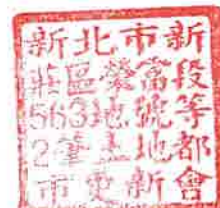 新北市新
莊區榮富段
563地號等
2筆土地都
市更新會